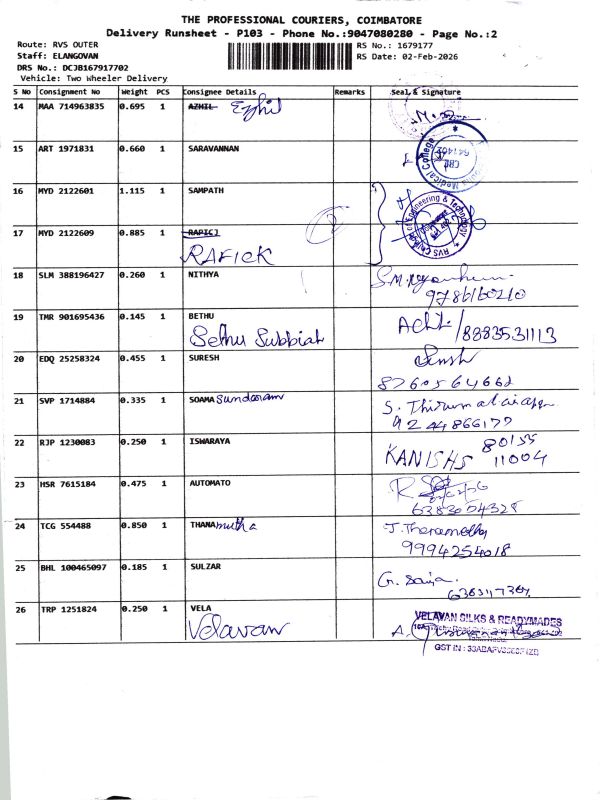 THE PROFESSIONAL COURIERS, COIMBATORE
Delivery Runsheet - P103 - Phone No.:9047080280 - Page No.:2
Route: RVS OUTER
Staff: ELANGOVAN
DRS No.: DCJB167917702
Vehicle: Two Wheeler Delivery
RS No.: 1679177
RS Date: 02-Feb-2026
S No Consignment No Weight PCS Consignee Details Remarks Seal & Signature
14 MAA 714963835 0.695 1 AZHIL Ezhil
15 ART 1971831 0.660 1 SARAVANNAN
Medical College
641402
16 MYD 2122601 1.115 1 SAMPATH
RVS College of Engineering & Technology
17 MYD 2122609 0.885 1 RAPICJ
RAFICK
18 SLM 388196427 0.260 1 NITHYA
9786160210
19 TMR 901695436 0.145 1 BETHU
Sethu Subbiah
8883531113
20 EDQ 25258324 0.455 1 SURESH
8760564662
21 SVP 1714884 0.335 1 SOAMA Sundaram
S. Thirumalaiappa
9244866177
22 RJP 1230083 0.250 1 ISWARAYA
KANISHS 80155
11004
23 HSR 7615184 0.475 1 AUTOMATO
6383604328
24 TCG 554488 0.850 1 THANA mutha
9994254018
25 BHL 100465097 0.185 1 SULZAR
26 TRP 1251824 0.250 1 VELA
Velavan
VELAVAN SILKS & READYMADES
GST IN :